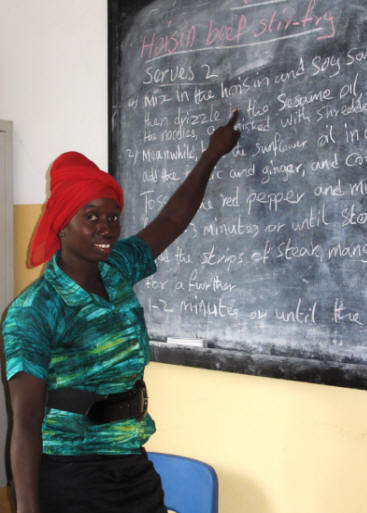 Hoisin beef stir-fry
Serves 2
1) Mix in the hoisin and soy sau
then drizzle the sesame oil,
the noodles, garnished with shredde
2) Meanwhile, the sunflower oil in a
add the and ginger, and coo
Toss the red pepper and mu
minutes or until sto
the strips of steak, mang
for a further
1-2 minutes or until the